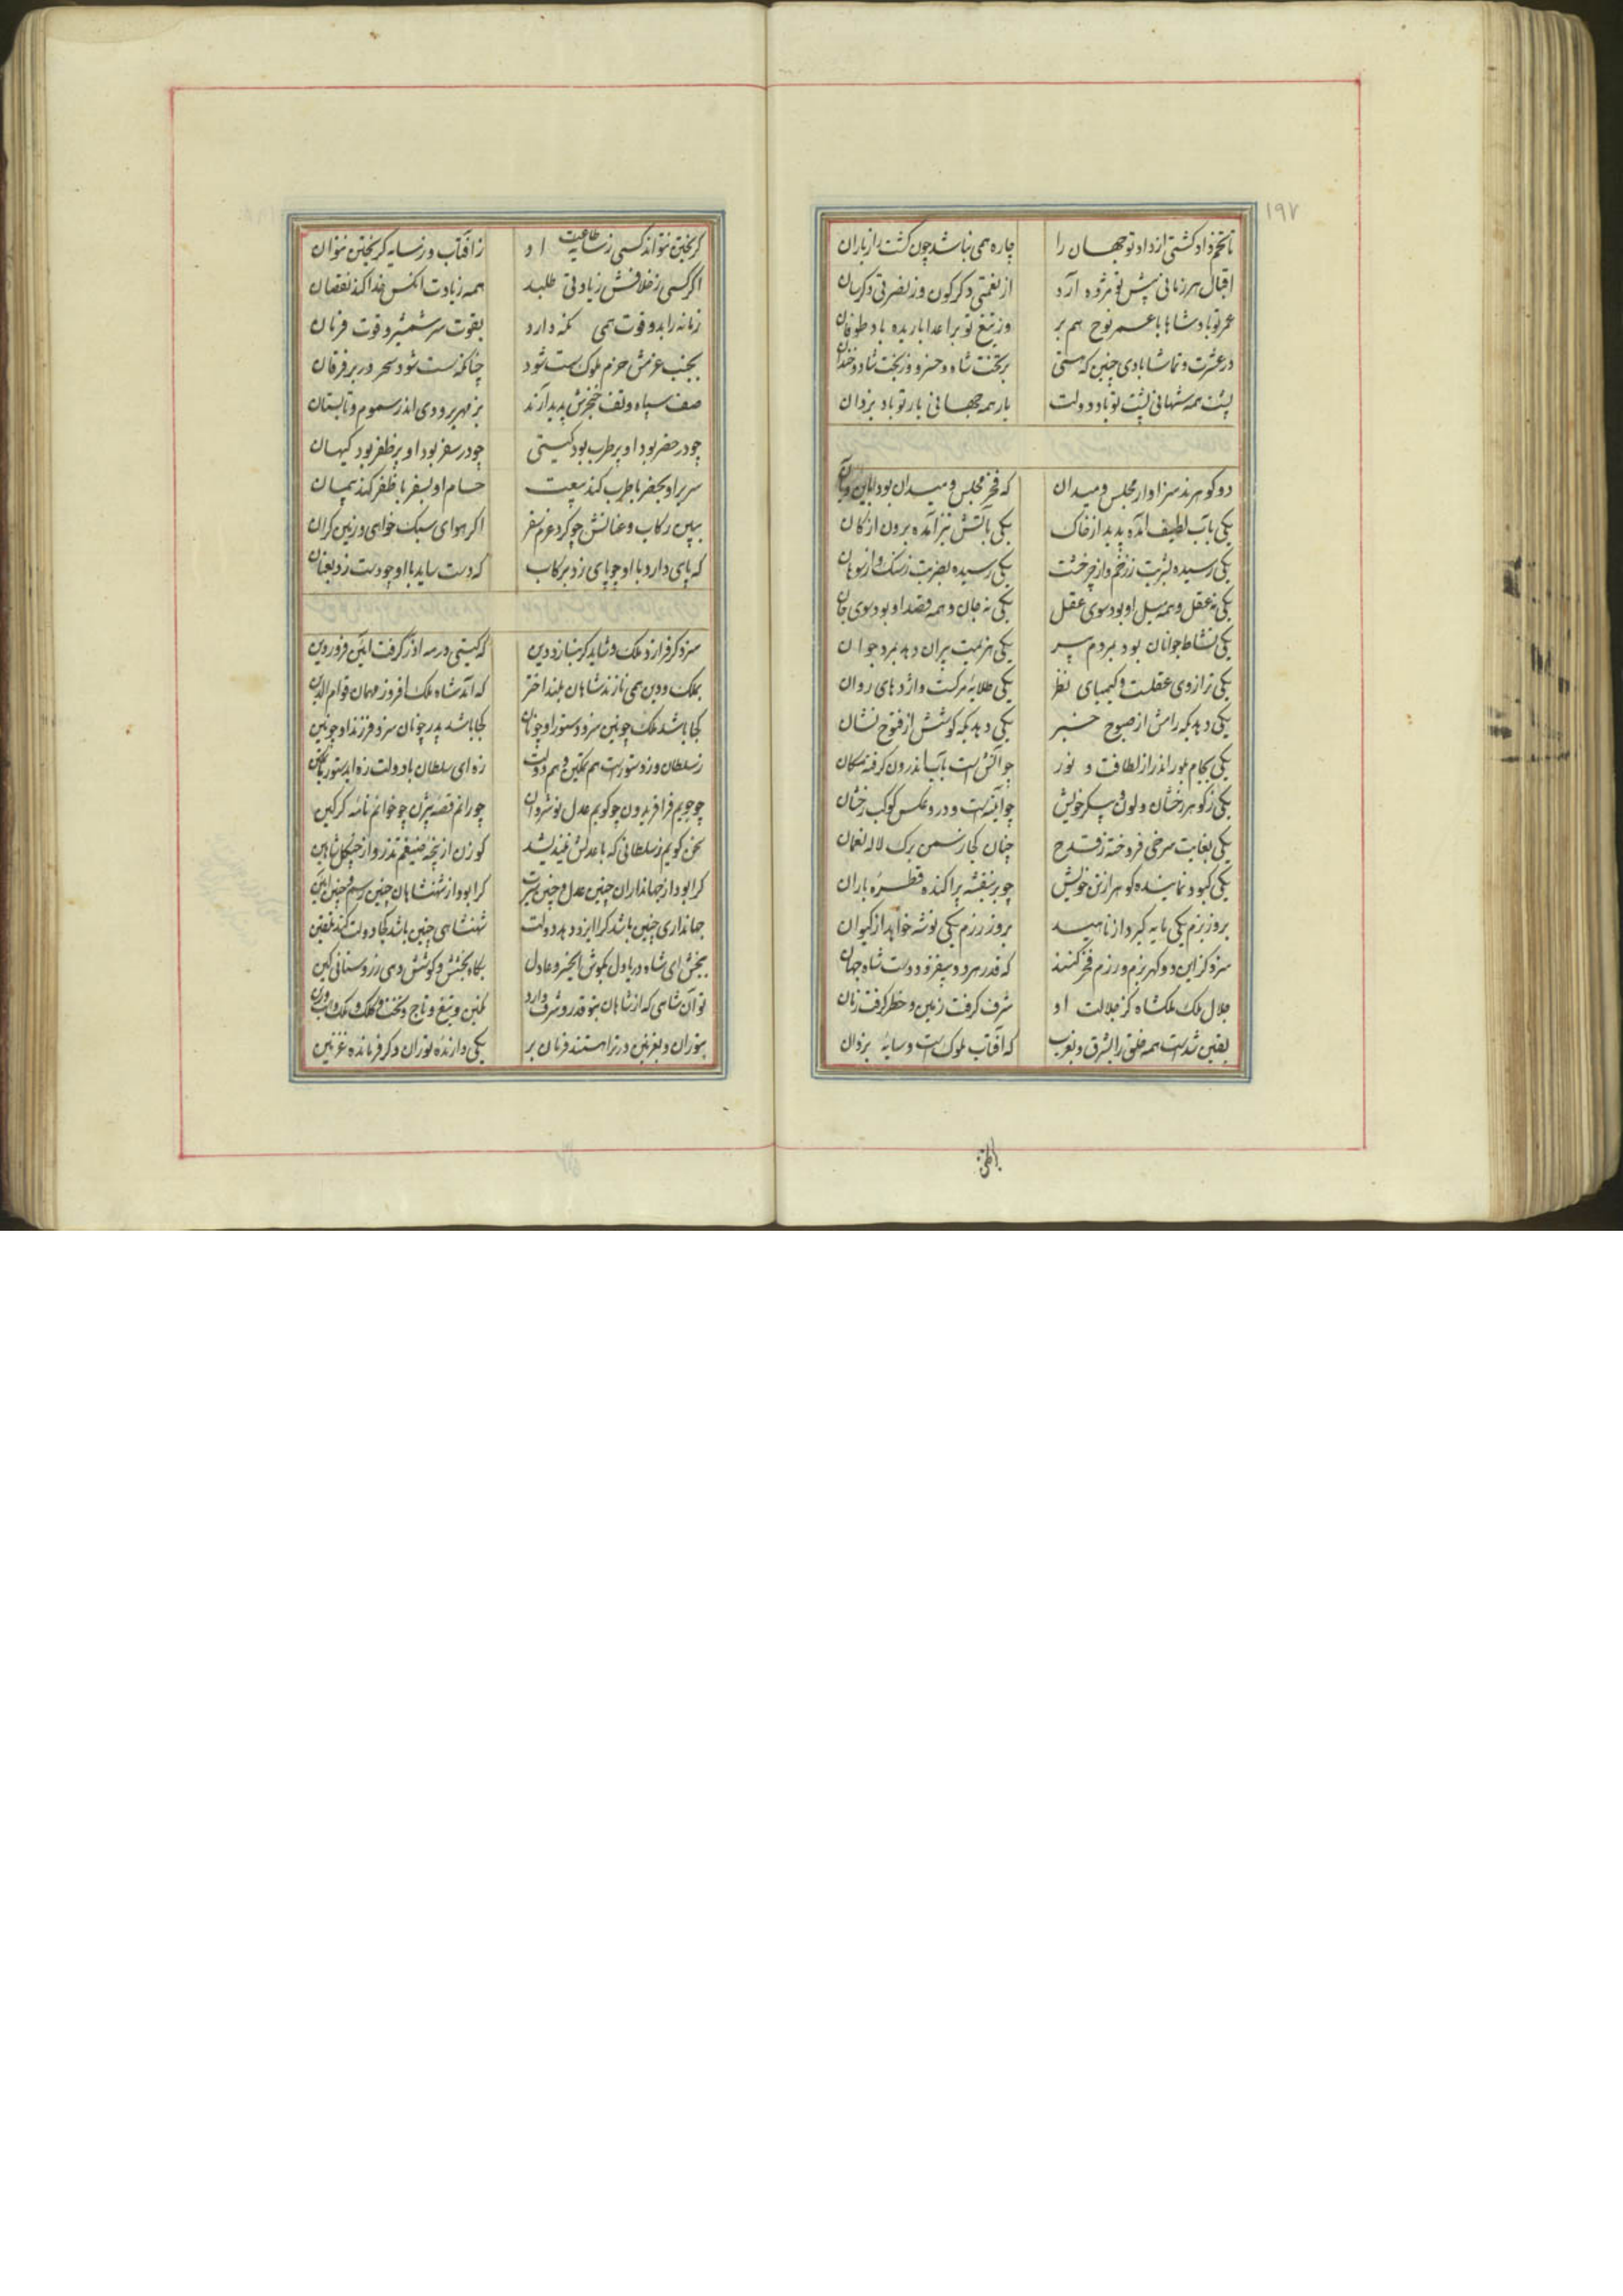 ۱۹۷
تا تخم داد کشتی از داد تو جهان را چاره همی نباشد چون کشت را ز باران
اقبال هر زمانی پیش تو مژده آرد از نعمتی دگرگون وز نصرتی دگرسان
عمر تو باد شاها با عمر نوح هم بر وز تیغ تو بر اعدا باریده باد طوفان
در عشرت و تماشا بادی چنین که هستی بر تخت شاد و خسرو وز بخت شاد و خندان
پشت همه شهانی پشت تو باد دولت یار همه جهانی یار تو باد یزدان
دو گوهرند سزاوار مجلس و میدان که فخر مجلس و میدان بود باین و بآن
یکی بآب لطیف آمده پدید از خاک یکی بآتش تیز آمده برون از کان
یکی رسیده بشربت ز زخم و از چرخشت یکی رسیده بضربت ز سنگ و از سوهان
یکی نه عقل و همه میل او بود سوی عقل یکی نه جان و همه قصد او بود سوی جان
یکی نشاط جوانان بود بمردم پیر یکی هزیمت پیران دهد بمرد جوان
یکی ترازوی عقلست و کیمیای نظر یکی طلایه مرگست و اژدهای روان
یکی دهد بگه رامش از صبوح خبر یکی دهد بگه کوشش از فتوح نشان
یکی بجام بلور اندر از لطافت و نور چو آتش است بآب اندرون گرفته مکان
یکی ز گوهر رخشان و لون و پیکر خویش چو آینه‌ست و درو عکس کوکب رخشان
یکی بغایت سرخی فروخته ز قدح چنان کجا ز سمن برگ لاله نعمان
یکی کبود و نماینده گوهر از تن خویش چو بر بنفشه پراکنده قطرهٔ باران
بروز بزم یکی مایه گیرد از ناهید بروز رزم یکی توشه خواهد از کیوان
سزد گر این دو گهر بزم و رزم فخر کنند که قدر هر دو بیفزود دست شاه جهان
جلال ملک ملکشاه کز جلالت او شرف گرفت زمین و خطر گرفت زمان
یقین شدست همه خلق را بشرق و بغرب که آفتاب ملوکست و سایهٔ یزدان
گریختن نتواند کسی ز سایه طاعت او ز آفتاب و ز سایه گریختن نتوان
اگر کسی ز خلافش زیادتی طلبد همه زیادت آنکس خدا کند نقصان
زمانه را بدو قوت همی نگه دارد بقوت سر شمشیر و قوت فرمان
بجنب عزمش حزم ملوک سست شود چنانکه سست شود سحر در بر فرقان
صف سپاه و تف خنجرش پدید آرند بزمهریر و دی اندر سموم و تابستان
چو در حضر بود او پر طرب بود گیتی چو در سفر بود او پر ظفر بود گیهان
سریر او بحضر با طرب کند بیعت حسام او بسفر با ظفر کند پیمان
ببین رکاب و عنانش چو کرد عزم سفر اگر هوای سبک خواهی و زمین گران
که پای دارد با او چو پای زد برکاب که دست ساید با او چو دست زد بعنان
سزد گر فرازد ملک و شاید گر بنازد دین که گیتی در مه آذر گرفت آئین فروردین
بملک و دین همی نازند شاهان بلند اختر که آمد شاه ملک افروز مهمان قوام الدین
کجا باشد ملک چونین سزد دستور او چونان کجا باشد پدر چونان سزد فرزند او چونین
ز سلطان وز دستورست هم تمکین و هم دولت زه ای سلطان با دولت زه ای دستور با تمکین
چو جویم فر افریدون چو گویم عدل نوشروان چو رانم قصهٔ بیژن چو خوانم نامهٔ گرگین
سخن گویم ز سلطانی که با عدلش نیندیشد گوزن از پنجهٔ ضیغم تذرو از چنگل شاهین
کرا بود از جهانداران چنین عدل و چنین سیرت کرا بود از شهنشاهان چنین رسم و چنین آئین
جهانداری چنین باشد کرا ایزد دهد دولت شهنشاهی چنین باشد کجا دولت کند تلقین
ببخش ای شاه دریا دل بکوش ای خسرو عادل بگاه بخشش و کوشش دهی زر و ستانی کین
تو آن شاهی که از شاهان بتو قدر و شرف دارد نگین و تیغ و تاج و تخت و کلک و ملک و اسب و زین
بتوران و بغزنین در ترا هستند فرمان بر یکی دارندهٔ توران دگر فرماندهٔ غزنین